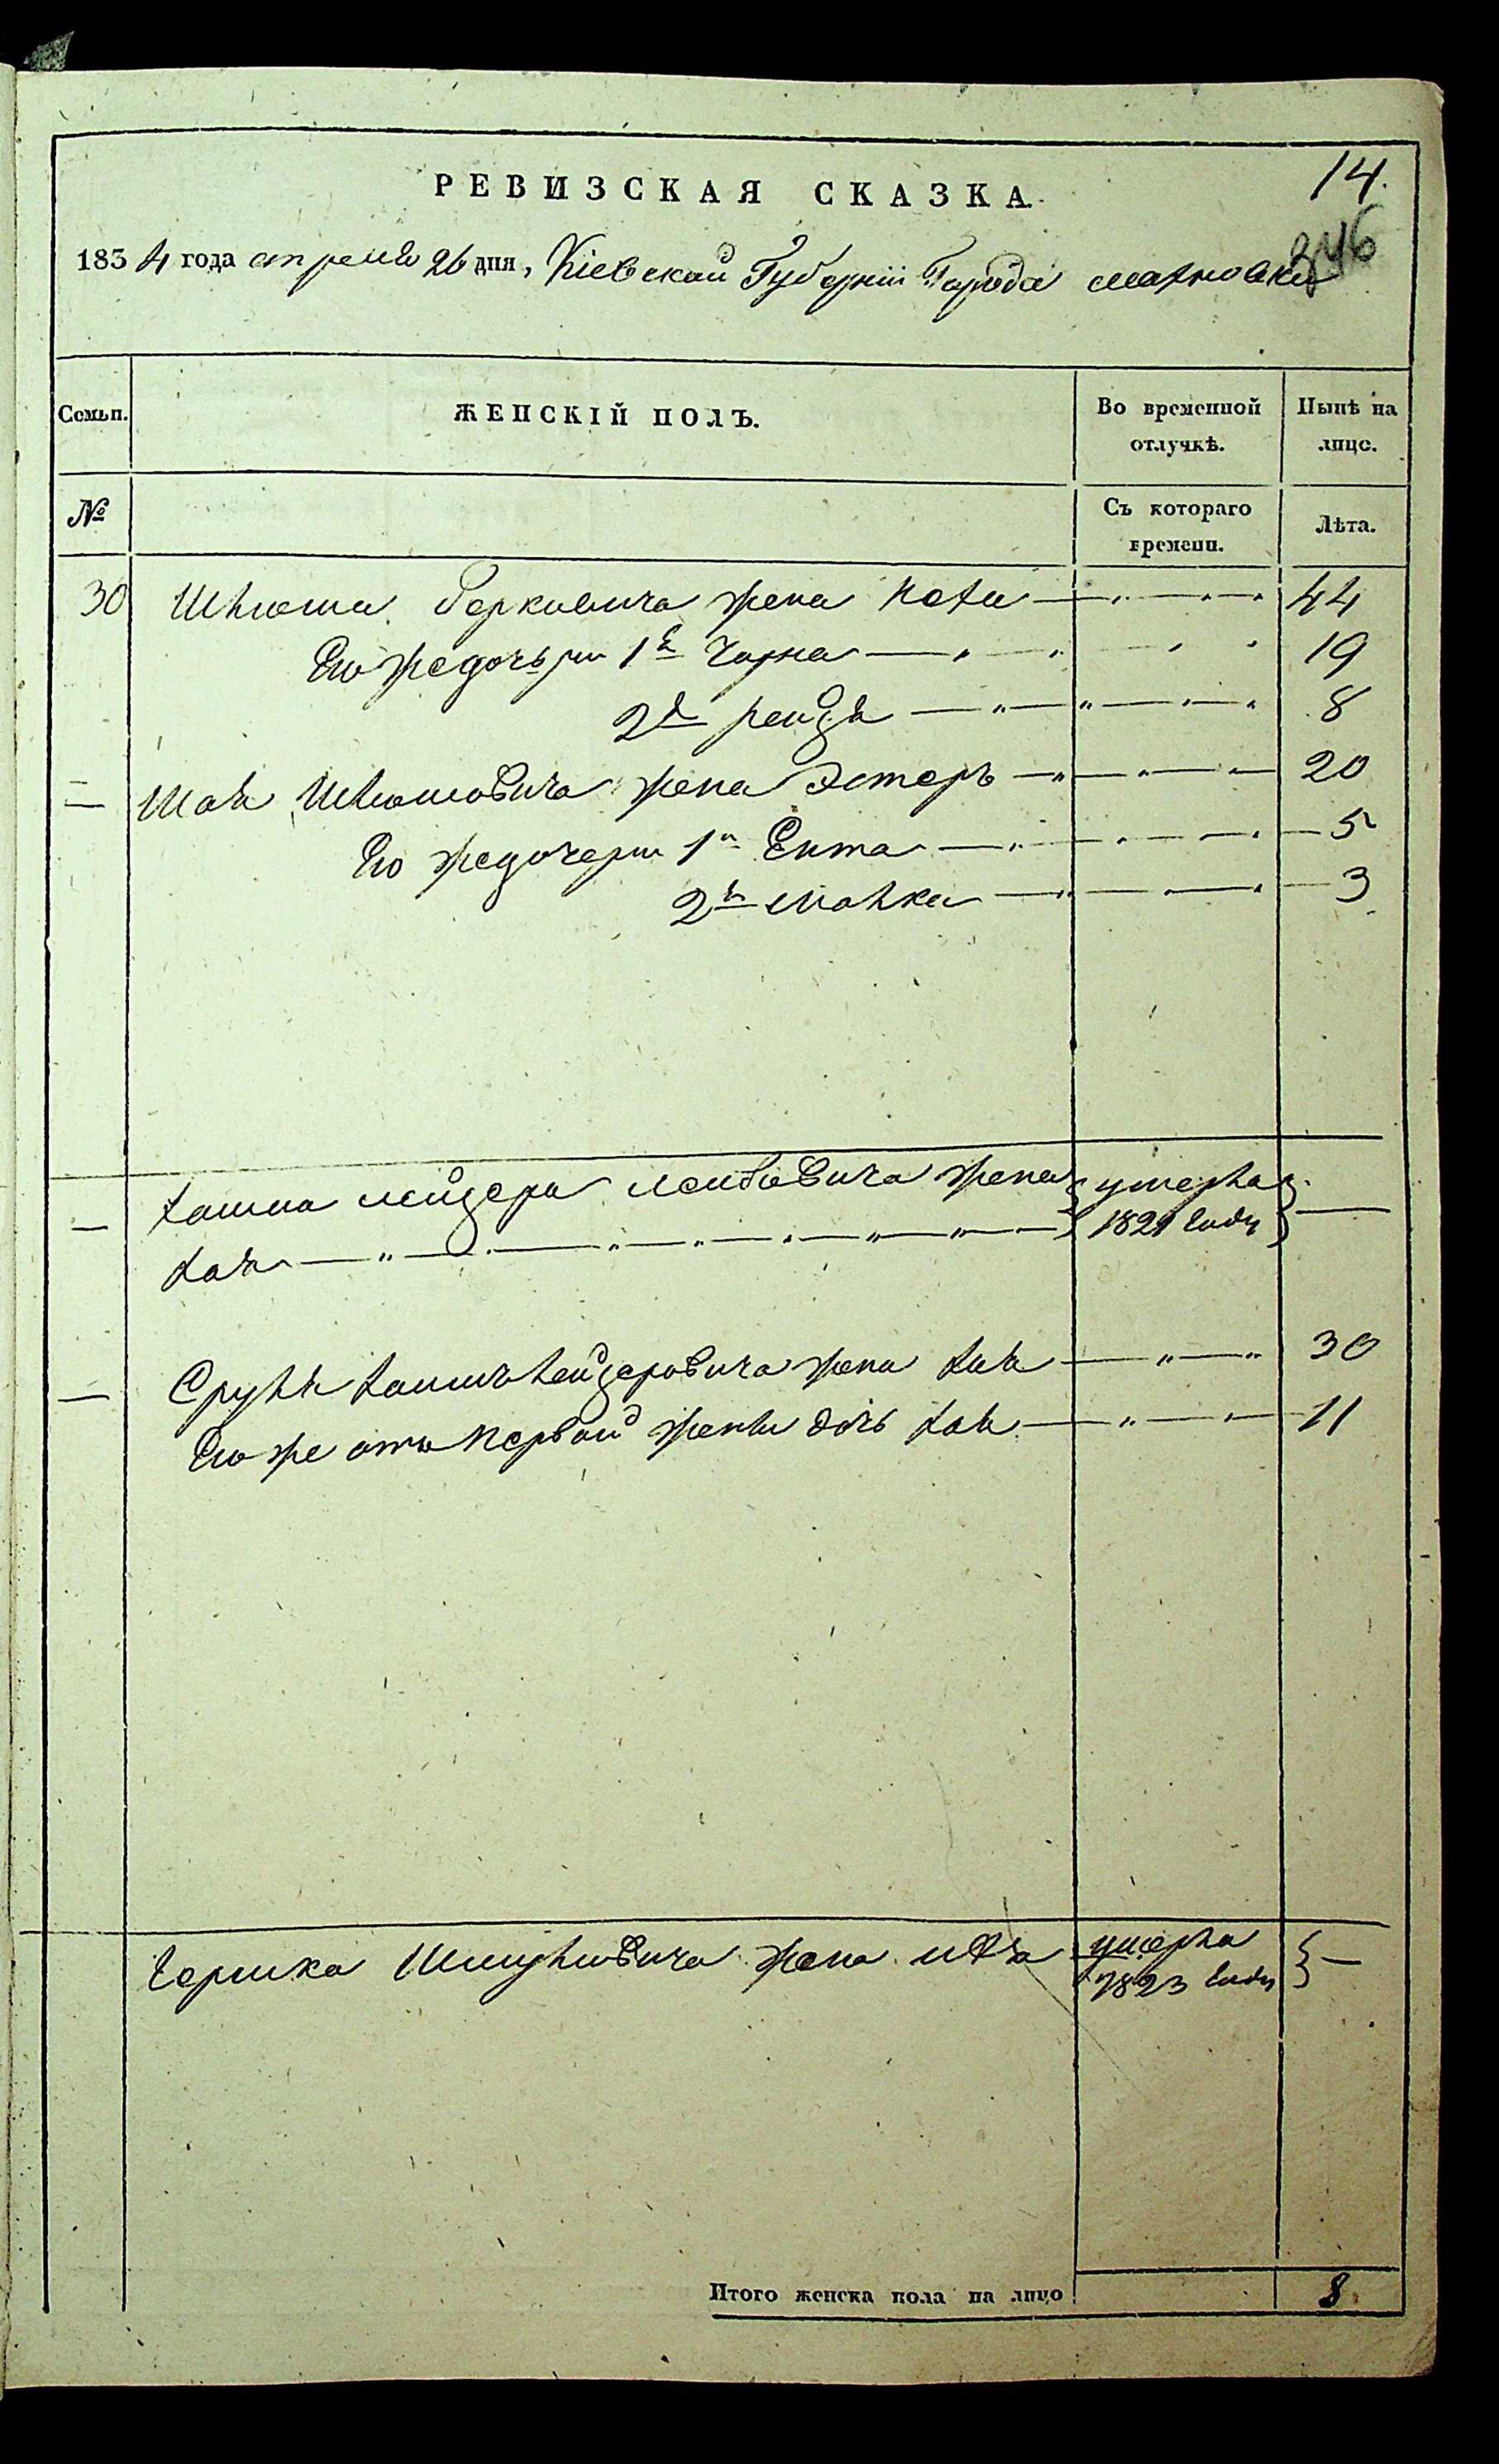 14.
РЕВИЗСКАЯ СКАЗКА.
246
1834 года апреля 26 дня, Кіевской Губерніи Города Махновки
Семьи. ЖЕНСКІЙ ПОЛЪ. Во временной отлучкѣ. Нынѣ на лице.
№ Съ котораго времени. Лѣта.
30 Шлиома Берковича жена 44
Его же дочьри 1я Чарна 19
2я рейзя 8
Шаи Шлиомовича жена Эстеръ 20
Его же дочери 1я Ента 5
2я малка 3
лейзера лейбовича жена умерла
Хая 1821 году
Сруля Хаимълейзеровича жена Хая 30
Его же отъ первой жены дочь Хая 11
Гершка Шмулиовича жена умерла
1823 году
Итого женска пола на лицо 8